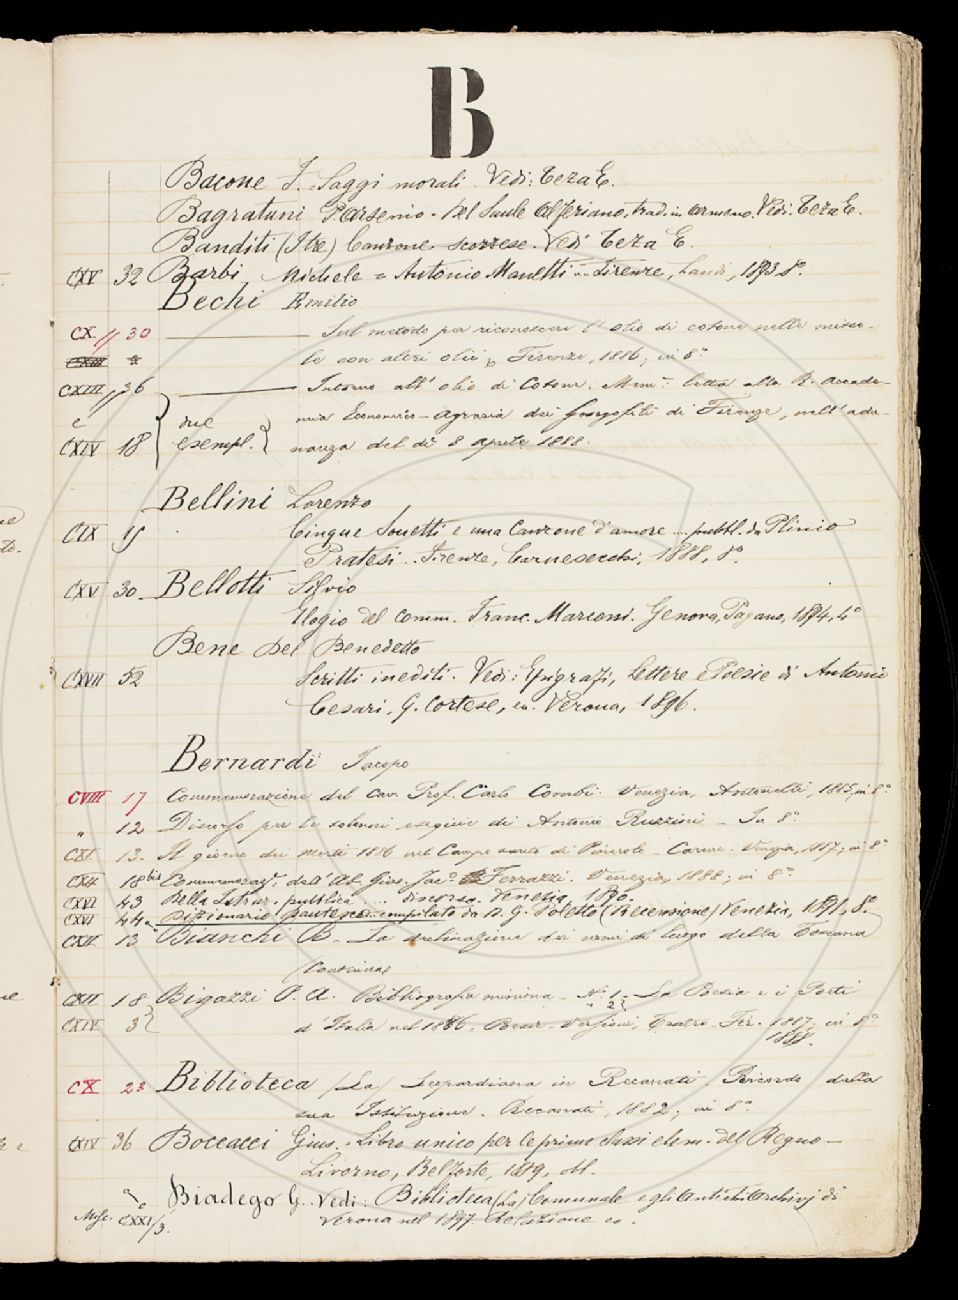 B
Bacone F. Saggi morali. Vedi: Teza E.
Bagratuni P. Arsenio - Del Saule Alfieriano, trad. in armeno. Vedi: Teza E.
Banditi (I tre) Canzone scozzese. Vedi Teza E.
CXV 32 Barbi Michele = Antonio Manetti - Firenze, Landi, 1893 8.°
Bechi Emilio
CX. // 30 Sul metodo per riconoscere l'olio di cotone nelle misce-
CXIII le con altri olii, Firenze, 1886, in 8.°
CXIII // 36 Intorno all'olio di Cotone. Mem. letta alla R. Accade-
e due mia Economico-agraria dei Georgofili di Firenze, nell'adu-
CXIV 18 esempl. nanza del dì 8 aprile 1888.
Bellini Lorenzo
CIX Cinque Sonetti e una Canzone d'amore ... pubbl. da Plinio
Pratesi .. Firenze, Carnesecchi, 1888, 8.°
CXV 30 - Bellotti Silvio
Elogio del comm. Franc. Marconi. Genova, Pagano, 1894, 4°
Bene Del Benedetto
CXVII 52 Scritti inediti. Vedi: Epigrafi, Lettere e Poesie di Antonio
Cesari, G. Cortese, ec. Verona, 1896.
Bernardi Jacopo
CVIII 17 Commemorazione del Cav. Prof. Carlo Combi. Venezia, Antonelli, 1885, in 8.°
" 12 Discorso per le solenni esequie di Antonio Ruzzini - In 8.°
CXI 13. Il giorno dei morti 1886 nel Campo santo di Pinerolo - Venezia, 1887, in 8.°
CXII 18 bis Commemoraz. dell'Ab. Gius. Jac. Ferrazzi. Venezia, 1888; in 8.°
CXVI 43 Della Istruz. pubblica ... discorso. Venezia, 1890.
CXVI 44. Dizionario Dantesco compilato da D. G. Poletto (Recensione) Venezia, 1891, 8.°
CXII 13 Bianchi B. - La declinazione dei nomi di luogo della Toscana
Continua
CXII 18 Bigazzi P. A. Bibliografia minima - N. 1 - La Poesia e i Poeti
2
CXIV 3 d'Italia nel 1886. - Versioni, Teatro - Fir. 1887, in 8°
1888.
CX 23 Biblioteca (La) Leopardiana in Recanati. Ricordo della
sua Istituzione. Recanati, 1882; in 8.°
CXIV 36 Boccacci Gius. - Libro unico per le prime classi elem. del Regno -
Livorno, Belforte, 1889, obl.
Biadego G. Vedi: Biblioteca (La) Comunale e gli Antichi Archivj di
Misc. CXXI/3. Verona nel 1897 Relazione ec.